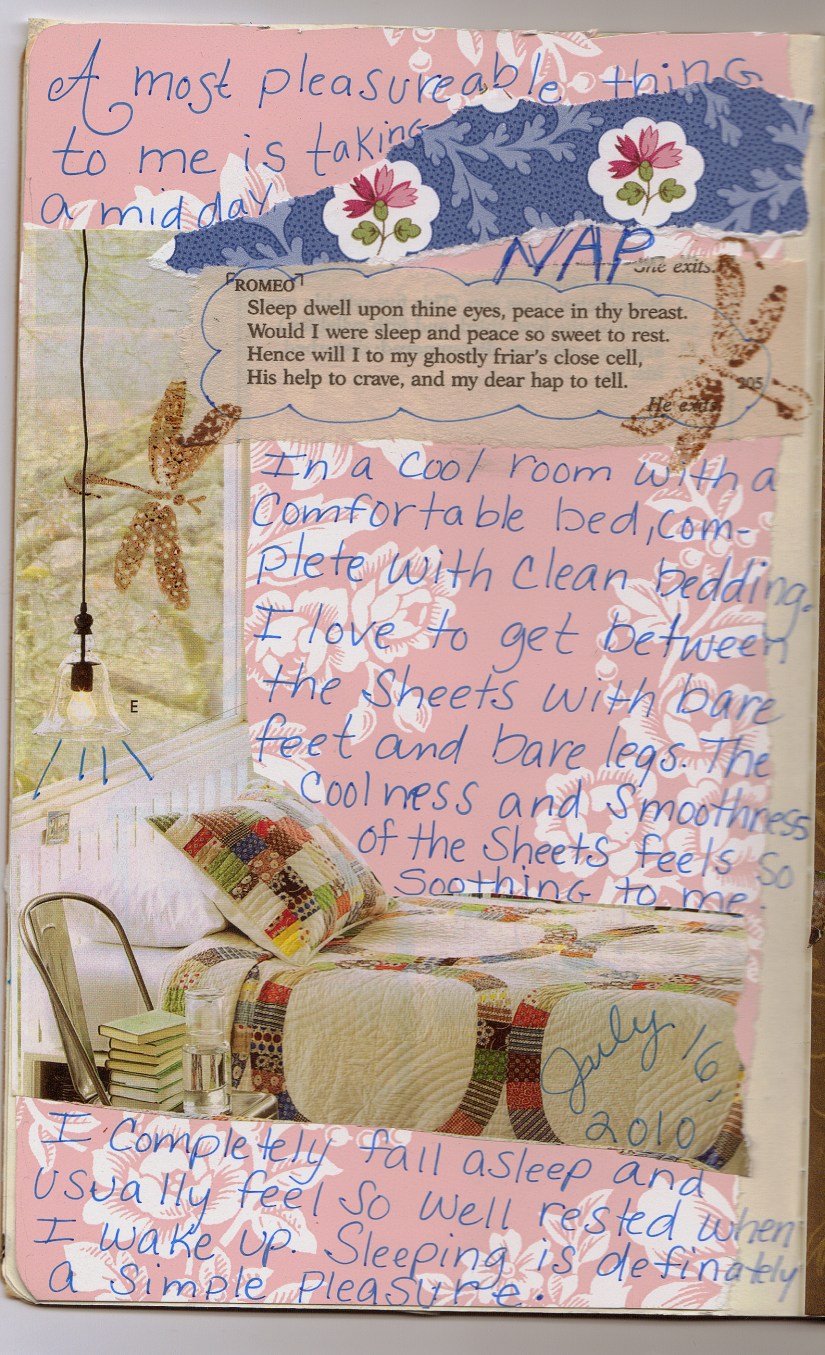 A most pleasureable thing
to me is taking
a midday
NAP
She exits.
ROMEO
Sleep dwell upon thine eyes, peace in thy breast.
Would I were sleep and peace so sweet to rest.
Hence will I to my ghostly friar's close cell,
His help to crave, and my dear hap to tell.
205
He exits.
In a cool room with a
Comfortable bed, com-
plete with clean bedding.
I love to get between
the sheets with bare
feet and bare legs. The
coolness and smoothness
of the sheets feels so
soothing to me.
E
July 16,
2010
I completely fall asleep and
usually feel so well rested when
I wake up. Sleeping is definately
a simple pleasure.